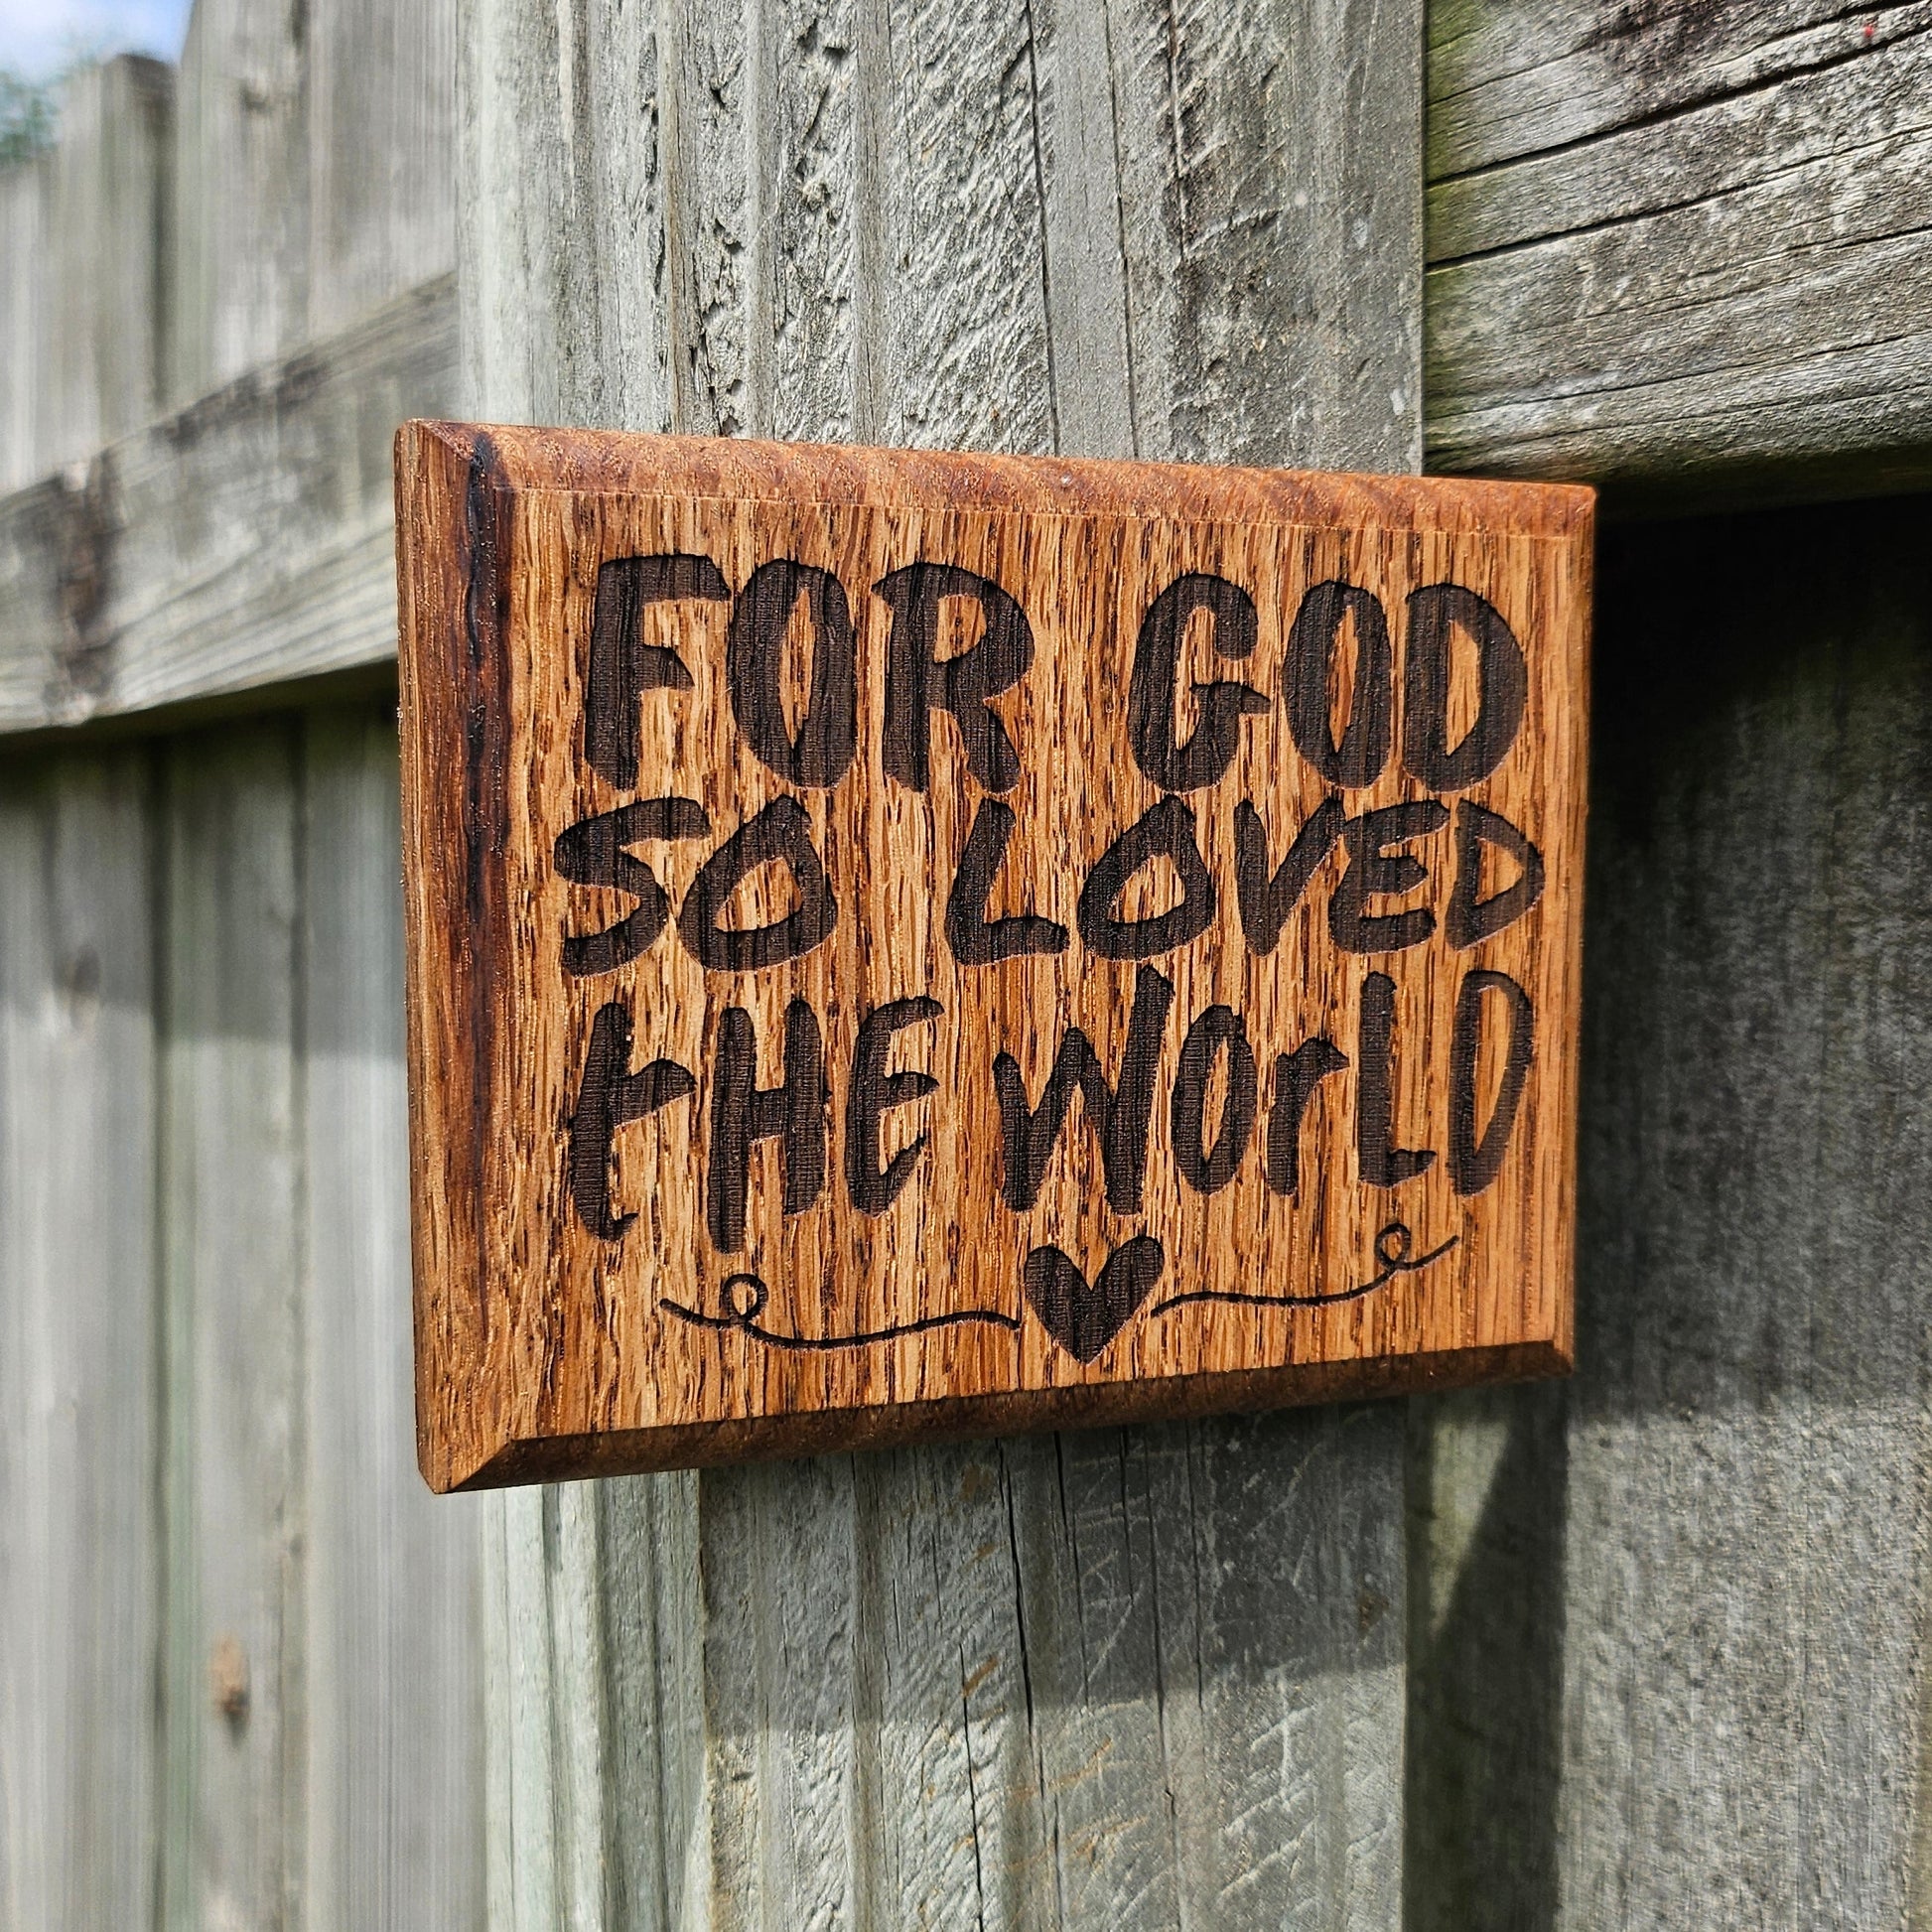 FOR GOD
SO LOVED
tHE WOrLD